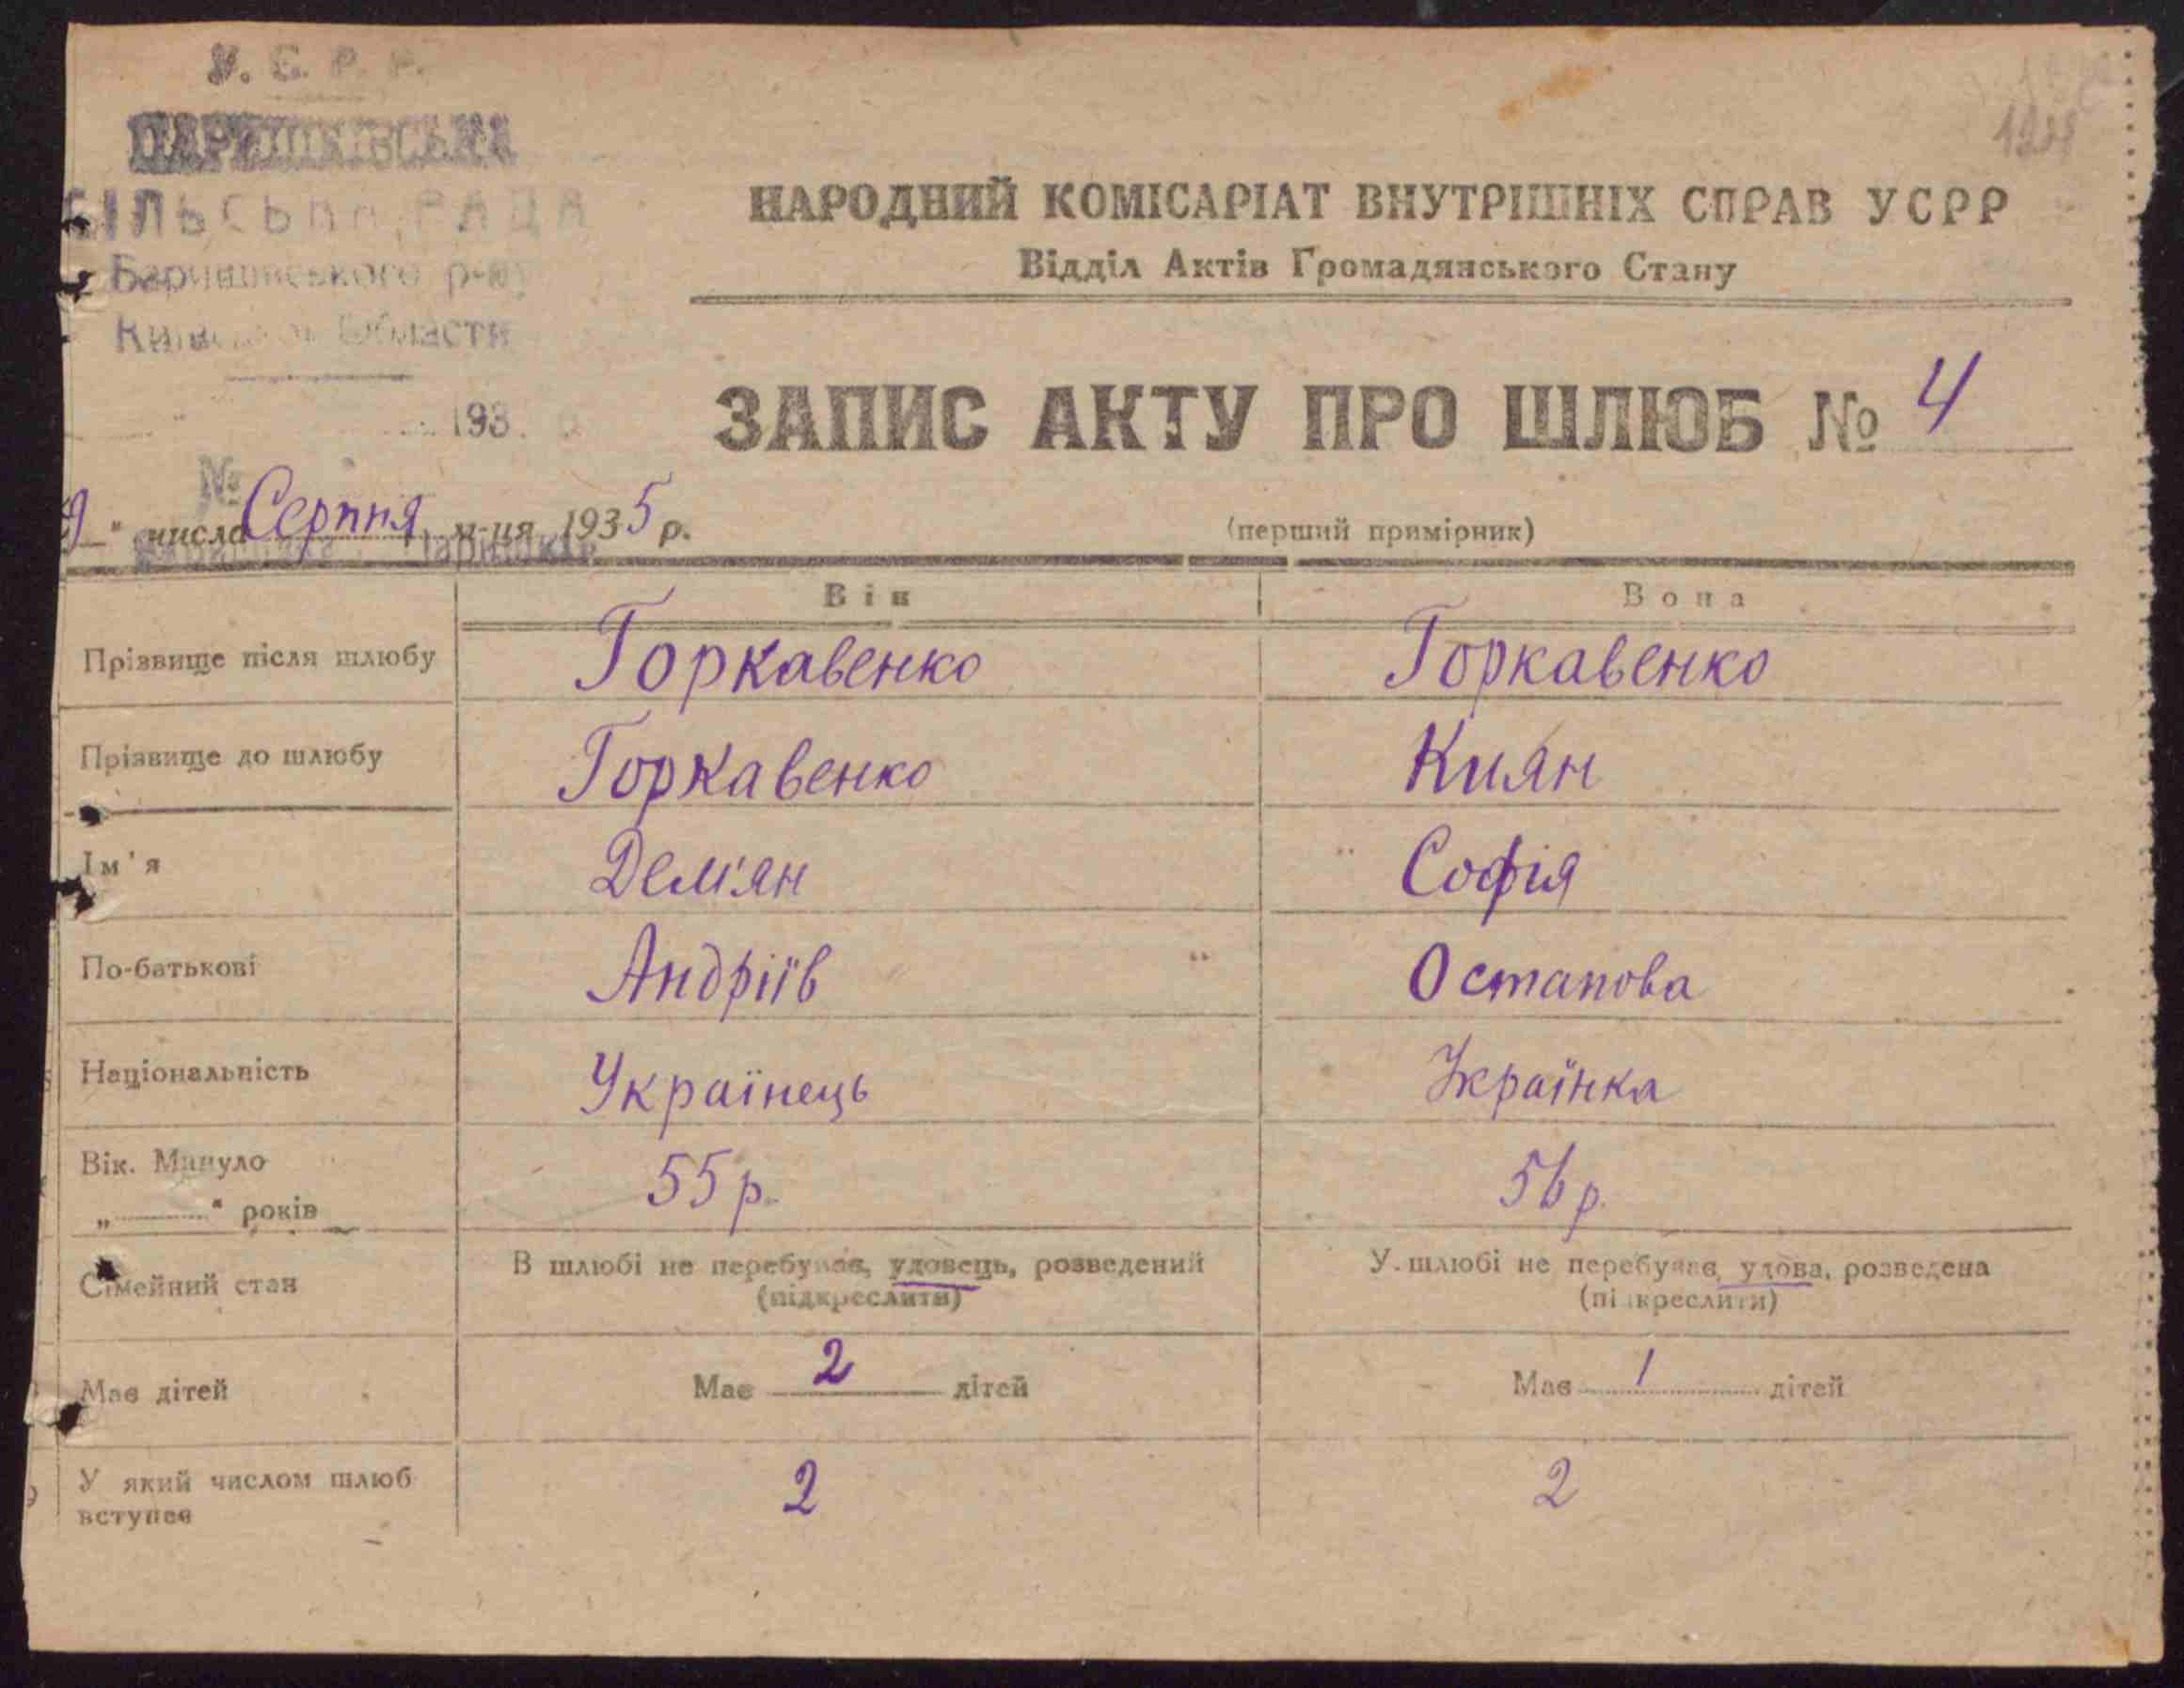 У. С. Р. Р.
ПАРИШКІВСЬКА
СІЛЬСЬКА РАДА
Баришівського р-ну
Київської Области
193
№
НАРОДНИЙ КОМІСАРІАТ ВНУТРІШНІХ СПРАВ УСРР
Відділ Актів Громадянського Стану
ЗАПИС АКТУ ПРО ШЛЮБ № 4
9 " числа Серпня м-ця 1935 р.
(перший примірник)
Він Вона
Прізвище після шлюбу Горкавенко Горкавенко
Прізвище до шлюбу Горкавенко Киян
Ім'я Дем'ян Софія
По-батькові Андріїв Остапова
Національність Українець Українка
Вік. Минуло 55 р. 56 р.
„ " років
Сімейний стан В шлюбі не перебував, удовець, розведений У шлюбі не перебував, удова, розведена
(підкреслити) (підкреслити)
Має дітей Має 2 дітей Має 1 дітей
У який числом шлюб 2 2
вступає